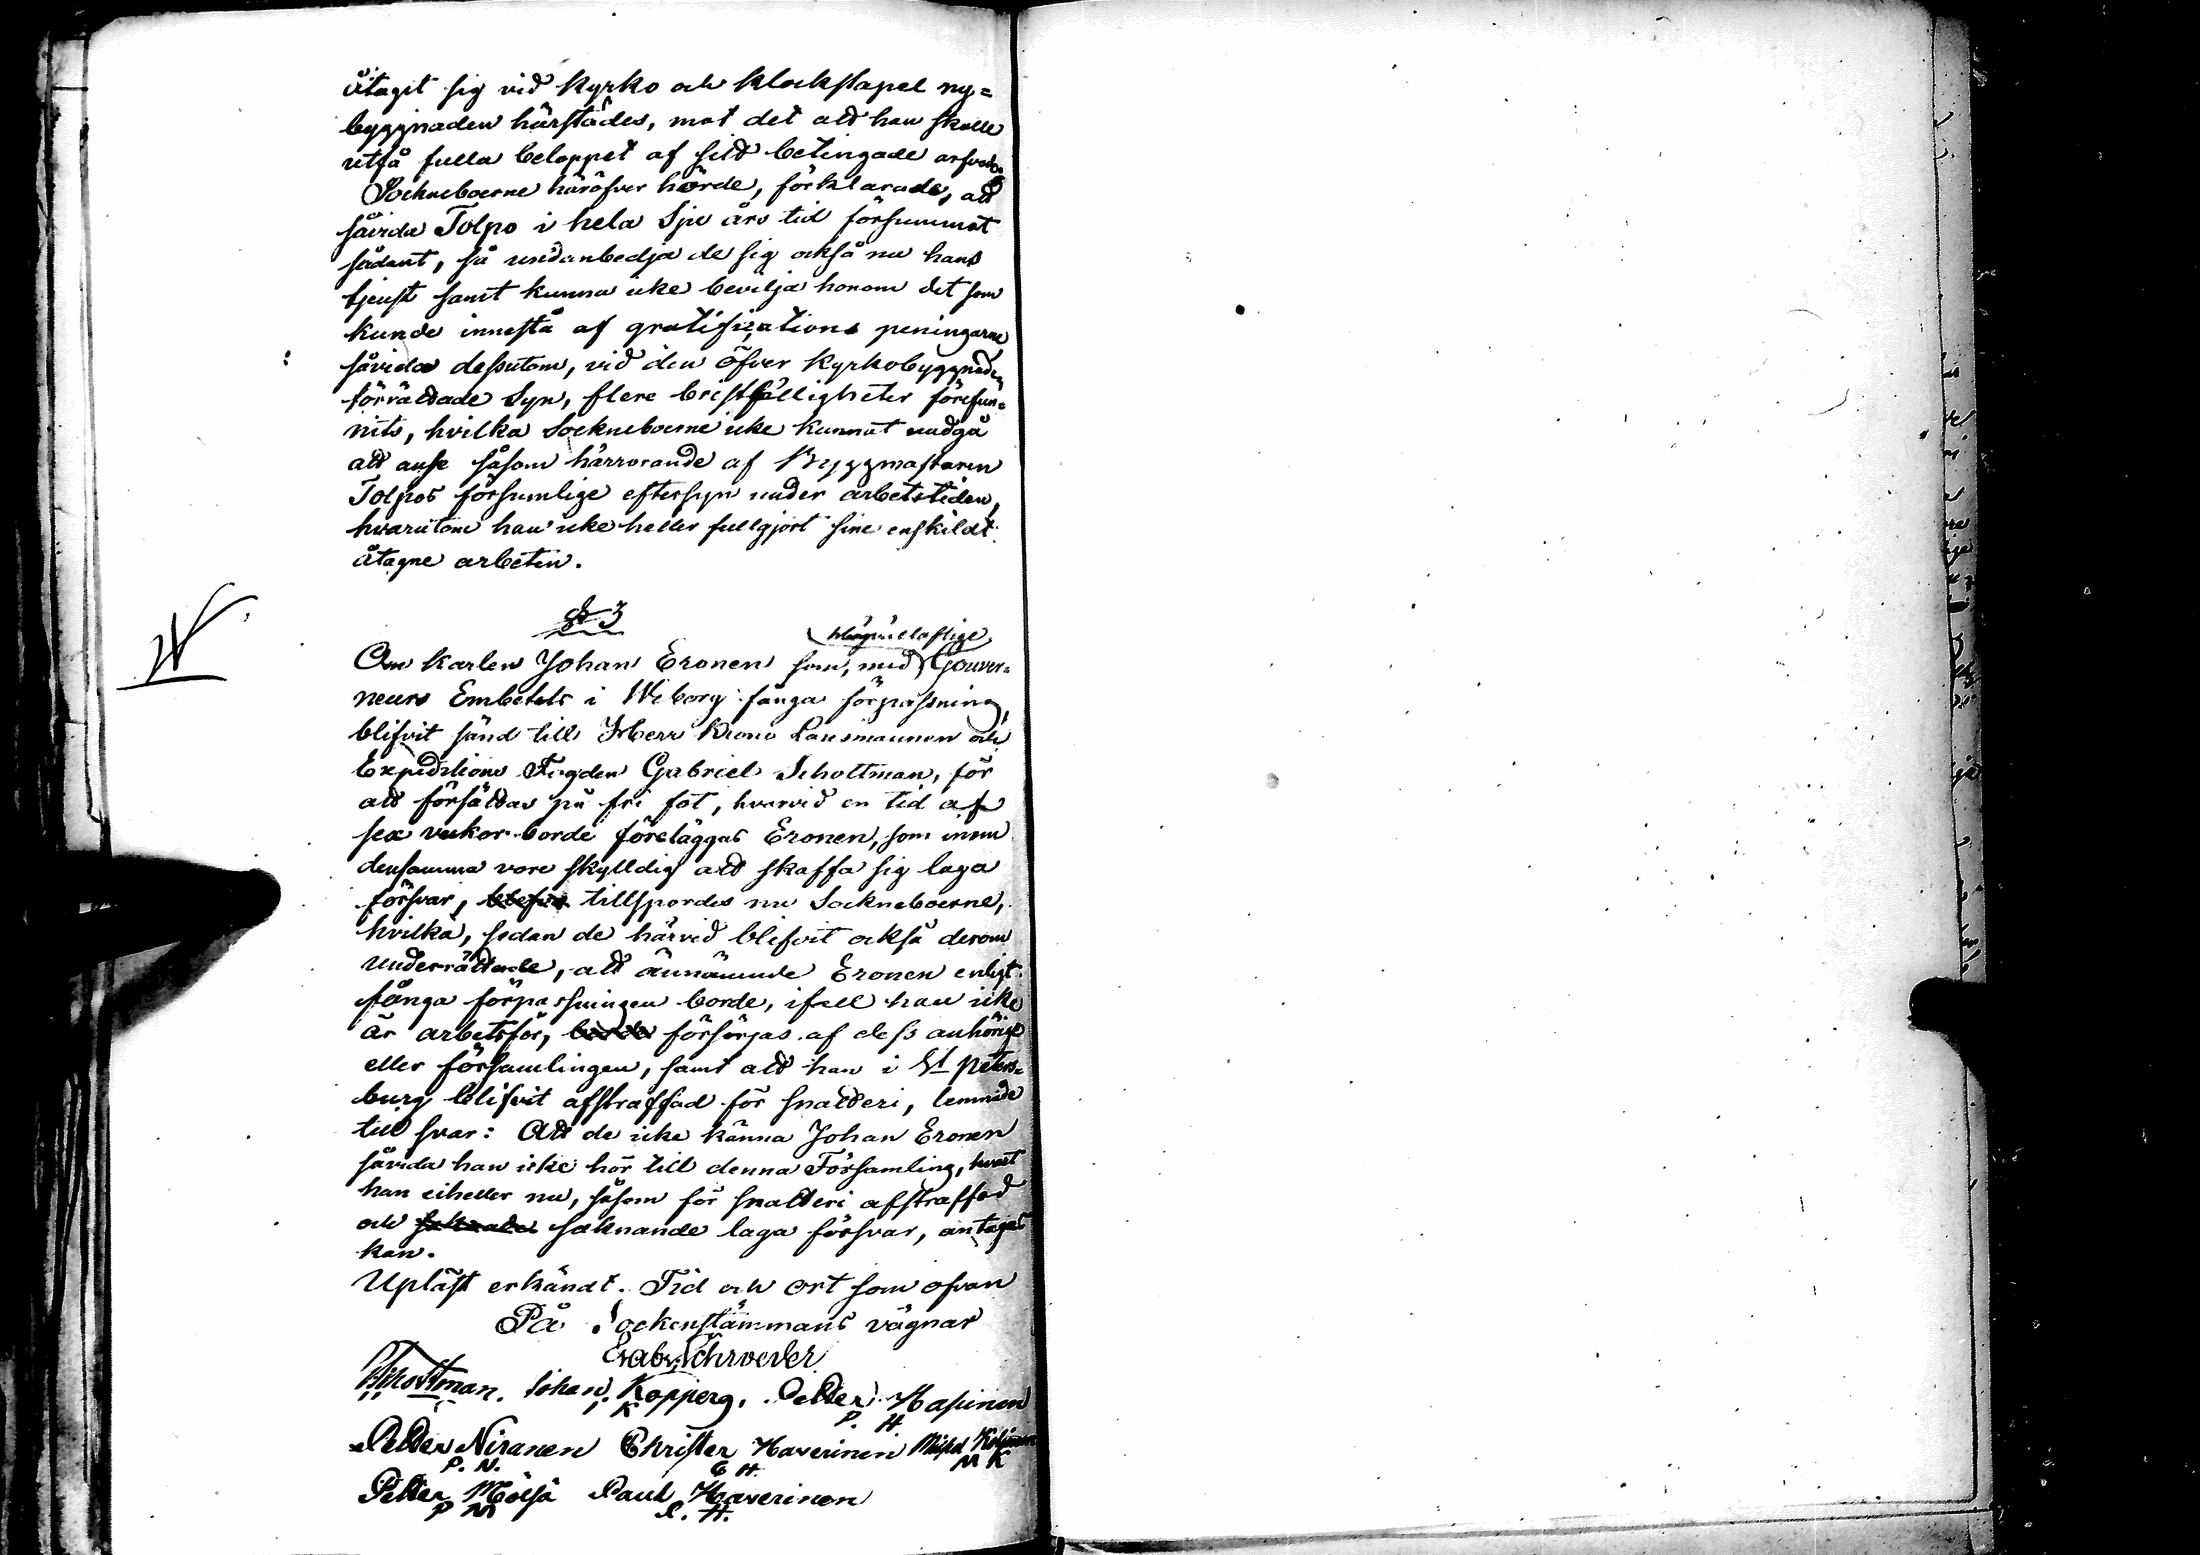 åtagit sig vid Kyrko och Klockstapel ny=
byggnaden härstädes, mot det att han skulle
utfå fulla beloppet af sitt betingade arfvode.
Sockneboerne häröfver hörde, förklarade, att
såvida Tolpo i hela sju års tid försummat
sådant, så undanbedja de sig också nu hans
tjenst samt kunna icke bevilja honom det som
kunde innestå af gratifications peningarne
såvida dessutom, vid den öfver Kyrkobyggnaden
förrättade Syn, flere bristfälligheter förefun=
nits, hvilka Sockneboerne icke kunnat undgå
att anse såsom härrorande af Byggmästaren
Tolpos försumlige eftersyn under arbetstiden,
hvarutom han icke heller fullgjort sine enskildt
åtagne arbeten.
§ 3
Om karlen Johan Eronen som, med Gouver=
neurs Embetets i Wiborg fånga förpassning,
blifvit sänd till Herr Krono Länsmannen och
Expeditions Fogden Gabriel Schottman, för
att försättas på fri fot, hvarvid en tid af
sex veckor borde föreläggas Eronen, som inom
densamma vore skylldig att skaffa sig laga
försvar, tillspordes nu Sockneboerne,
hvilka, sedan de härvid blifvit också derom
underrättade, att ännämnde Eronen enligt
fånga förpassningen borde, ifall han icke
är arbetsför, borde försörjas af dess anhörige
eller församlingen, samt att han i St Peters=
burg blifvit afstraffad för snatteri, lemnade
till svar: Att de icke känna Johan Eronen
såvida han icke hör till denna Församling, hvart
han eiheller nu, såsom för snatteri afstraffad
och saknande laga försvar, antagas
kan.
Upläst erkändt. Tid och ort som ofvan
På Sockenstämmans vägnar
Gabr. Schroeder
Schottman. Johan Kopperg. Petter Hasinen
K P. H
Petter Niranen Christer Haverinen Michel
P. N. C H. M K
Petter Mölsä Paul Haverinen
P M P. H.